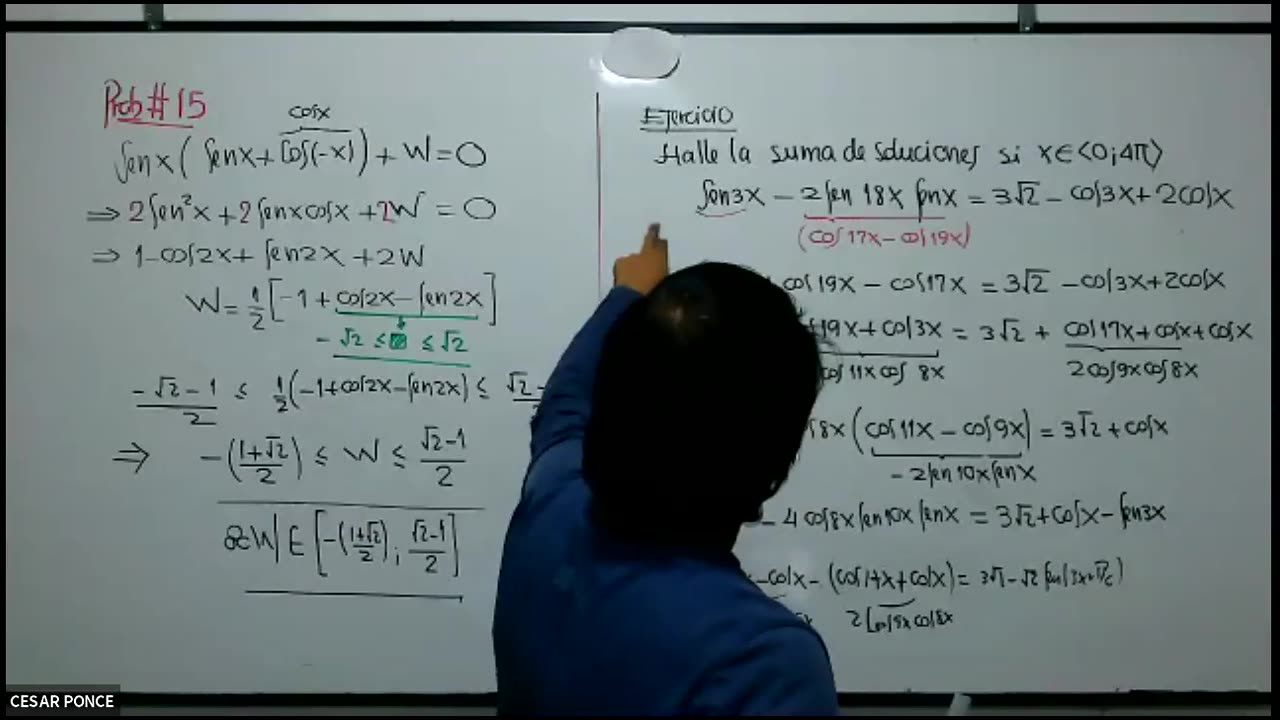 Prob # 15
cosx
Senx (Senx + Cos(-x)) + W = 0
⇒ 2Sen²x + 2Senxcosx + 2W = 0
⇒ 1 - cos2x + Sen2x + 2W
W = 1/2 [-1 + cos2x - Sen2x]
-√2 ≤ ≤ √2
(-√2 - 1)/2 ≤ 1/2 (-1 + cos2x - Sen2x) ≤
⇒ -((1+√2)/2) ≤ W ≤ (√2-1)/2
W ∈ [-((1+√2)/2) ; (√2-1)/2]
Ejercicio
Halle la suma de soluciones si x ∈ <0;4π>
Sen3x - 2Sen 18x Senx = 3√2 - cos3x + 2cosx
(cos17x - cos19x)
cos19x - cos17x = 3√2 - cos3x + 2cosx
19x + cos3x = 3√2 + cos17x + cosx + cosx
cos11x cos 8x 2cos9x cos8x
8x (cos11x - cos9x) = 3√2 + cosx
- 2Sen10x Senx
- 4cos8x Sen10x Senx = 3√2 + cosx - Sen3x
- cosx - (cos17x + cosx) =
cos8x
CESAR PONCE